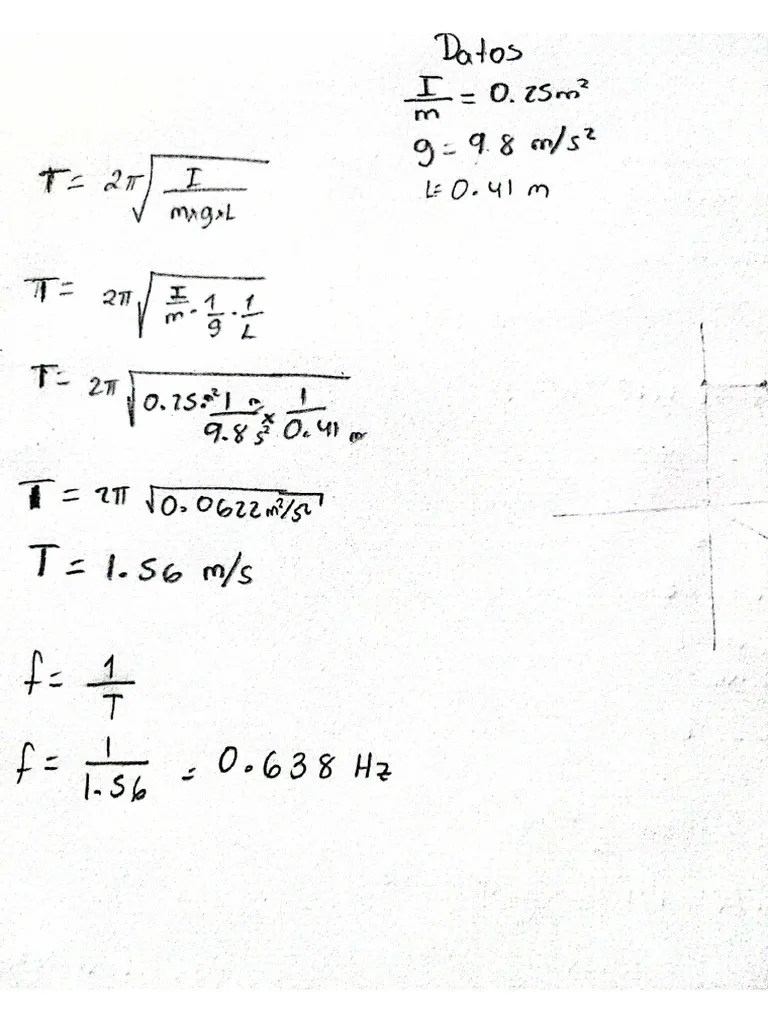 Datos
I/m = 0.25m²
g = 9.8 m/s²
L= 0.41 m
T = 2π√(I/(m×g×L))
T = 2π√(I/m · 1/g · 1/L)
T = 2π√(0.25m² · 1/(9.8 m/s²) × 1/(0.41 m))
T = 2π √(0.0622 m²/s²)
T = 1.56 m/s
f = 1/T
f = 1/1.56 = 0.638 Hz